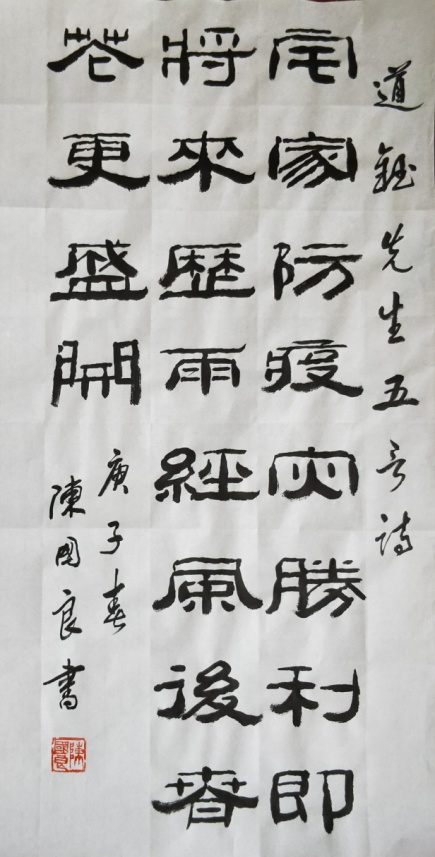 道鈺先生五言詩
宅家防疫灾勝利即
將來歷雨經風後春
花更盛開
庚子春
陳國良書
陳國良